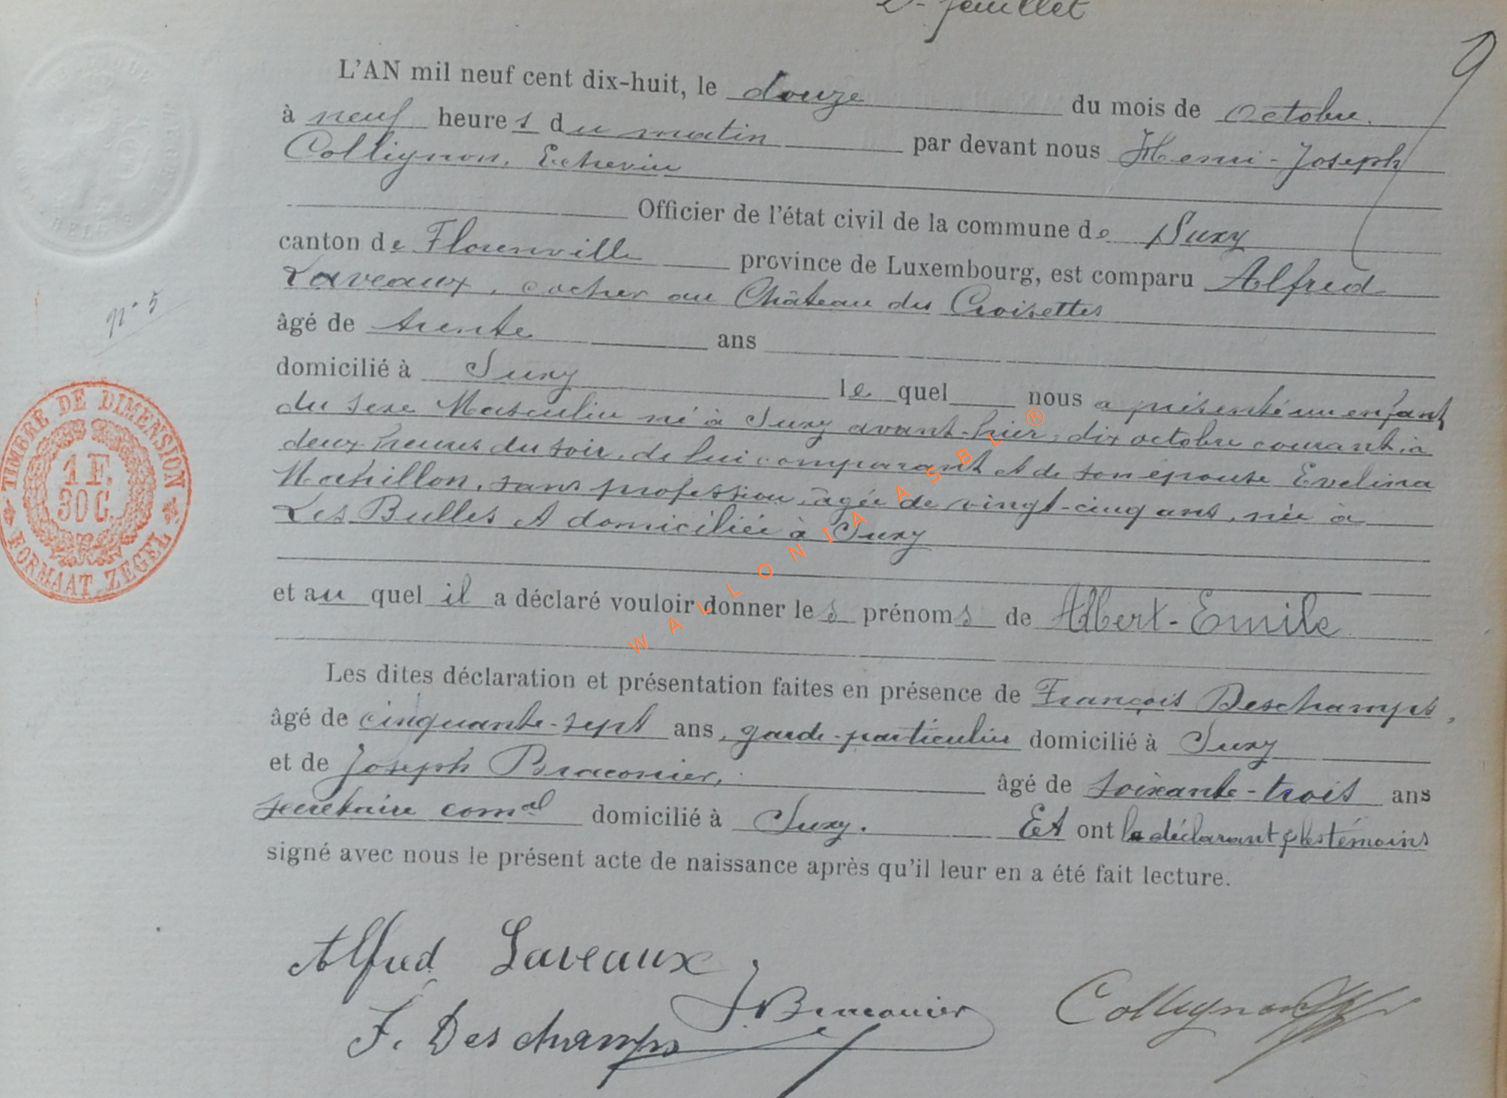 2e feuillet
9
L'AN mil neuf cent dix-huit, le douze du mois de octobre.
à neuf heures du matin par devant nous Henri-Joseph
Collignon, Echevin
Officier de l'état civil de la commune de Suxy
canton de Florenville province de Luxembourg, est comparu Alfred
Laveaux, cocher au Château des Croisettes
n° 5
âgé de trente ans
domicilié à Suxy lequel nous a présenté un enfant
du sexe Masculin né à Suxy avant-hier, dix octobre courant, à
deux heures du soir, de lui comparant et de son épouse Evelina
Mahillon, sans profession, âgée de vingt-cinq ans, née à
Les Bulles et domiciliée à Suxy
TIMBRE DE DIMENSION
1 F.
30 C.
FORMAAT ZEGEL
WALLONIA ASBL ®
et auquel il a déclaré vouloir donner les prénoms de Albert-Emile
Les dites déclaration et présentation faites en présence de François Deschamps,
âgé de cinquante-sept ans, garde-particulier domicilié à Suxy
et de Joseph Braconier, âgé de soixante-trois ans
secrétaire comal domicilié à Suxy. Et ont le déclarant & les témoins
signé avec nous le présent acte de naissance après qu'il leur en a été fait lecture.
Alfred Laveaux
J Braconier
Collignon
F. Deschamps